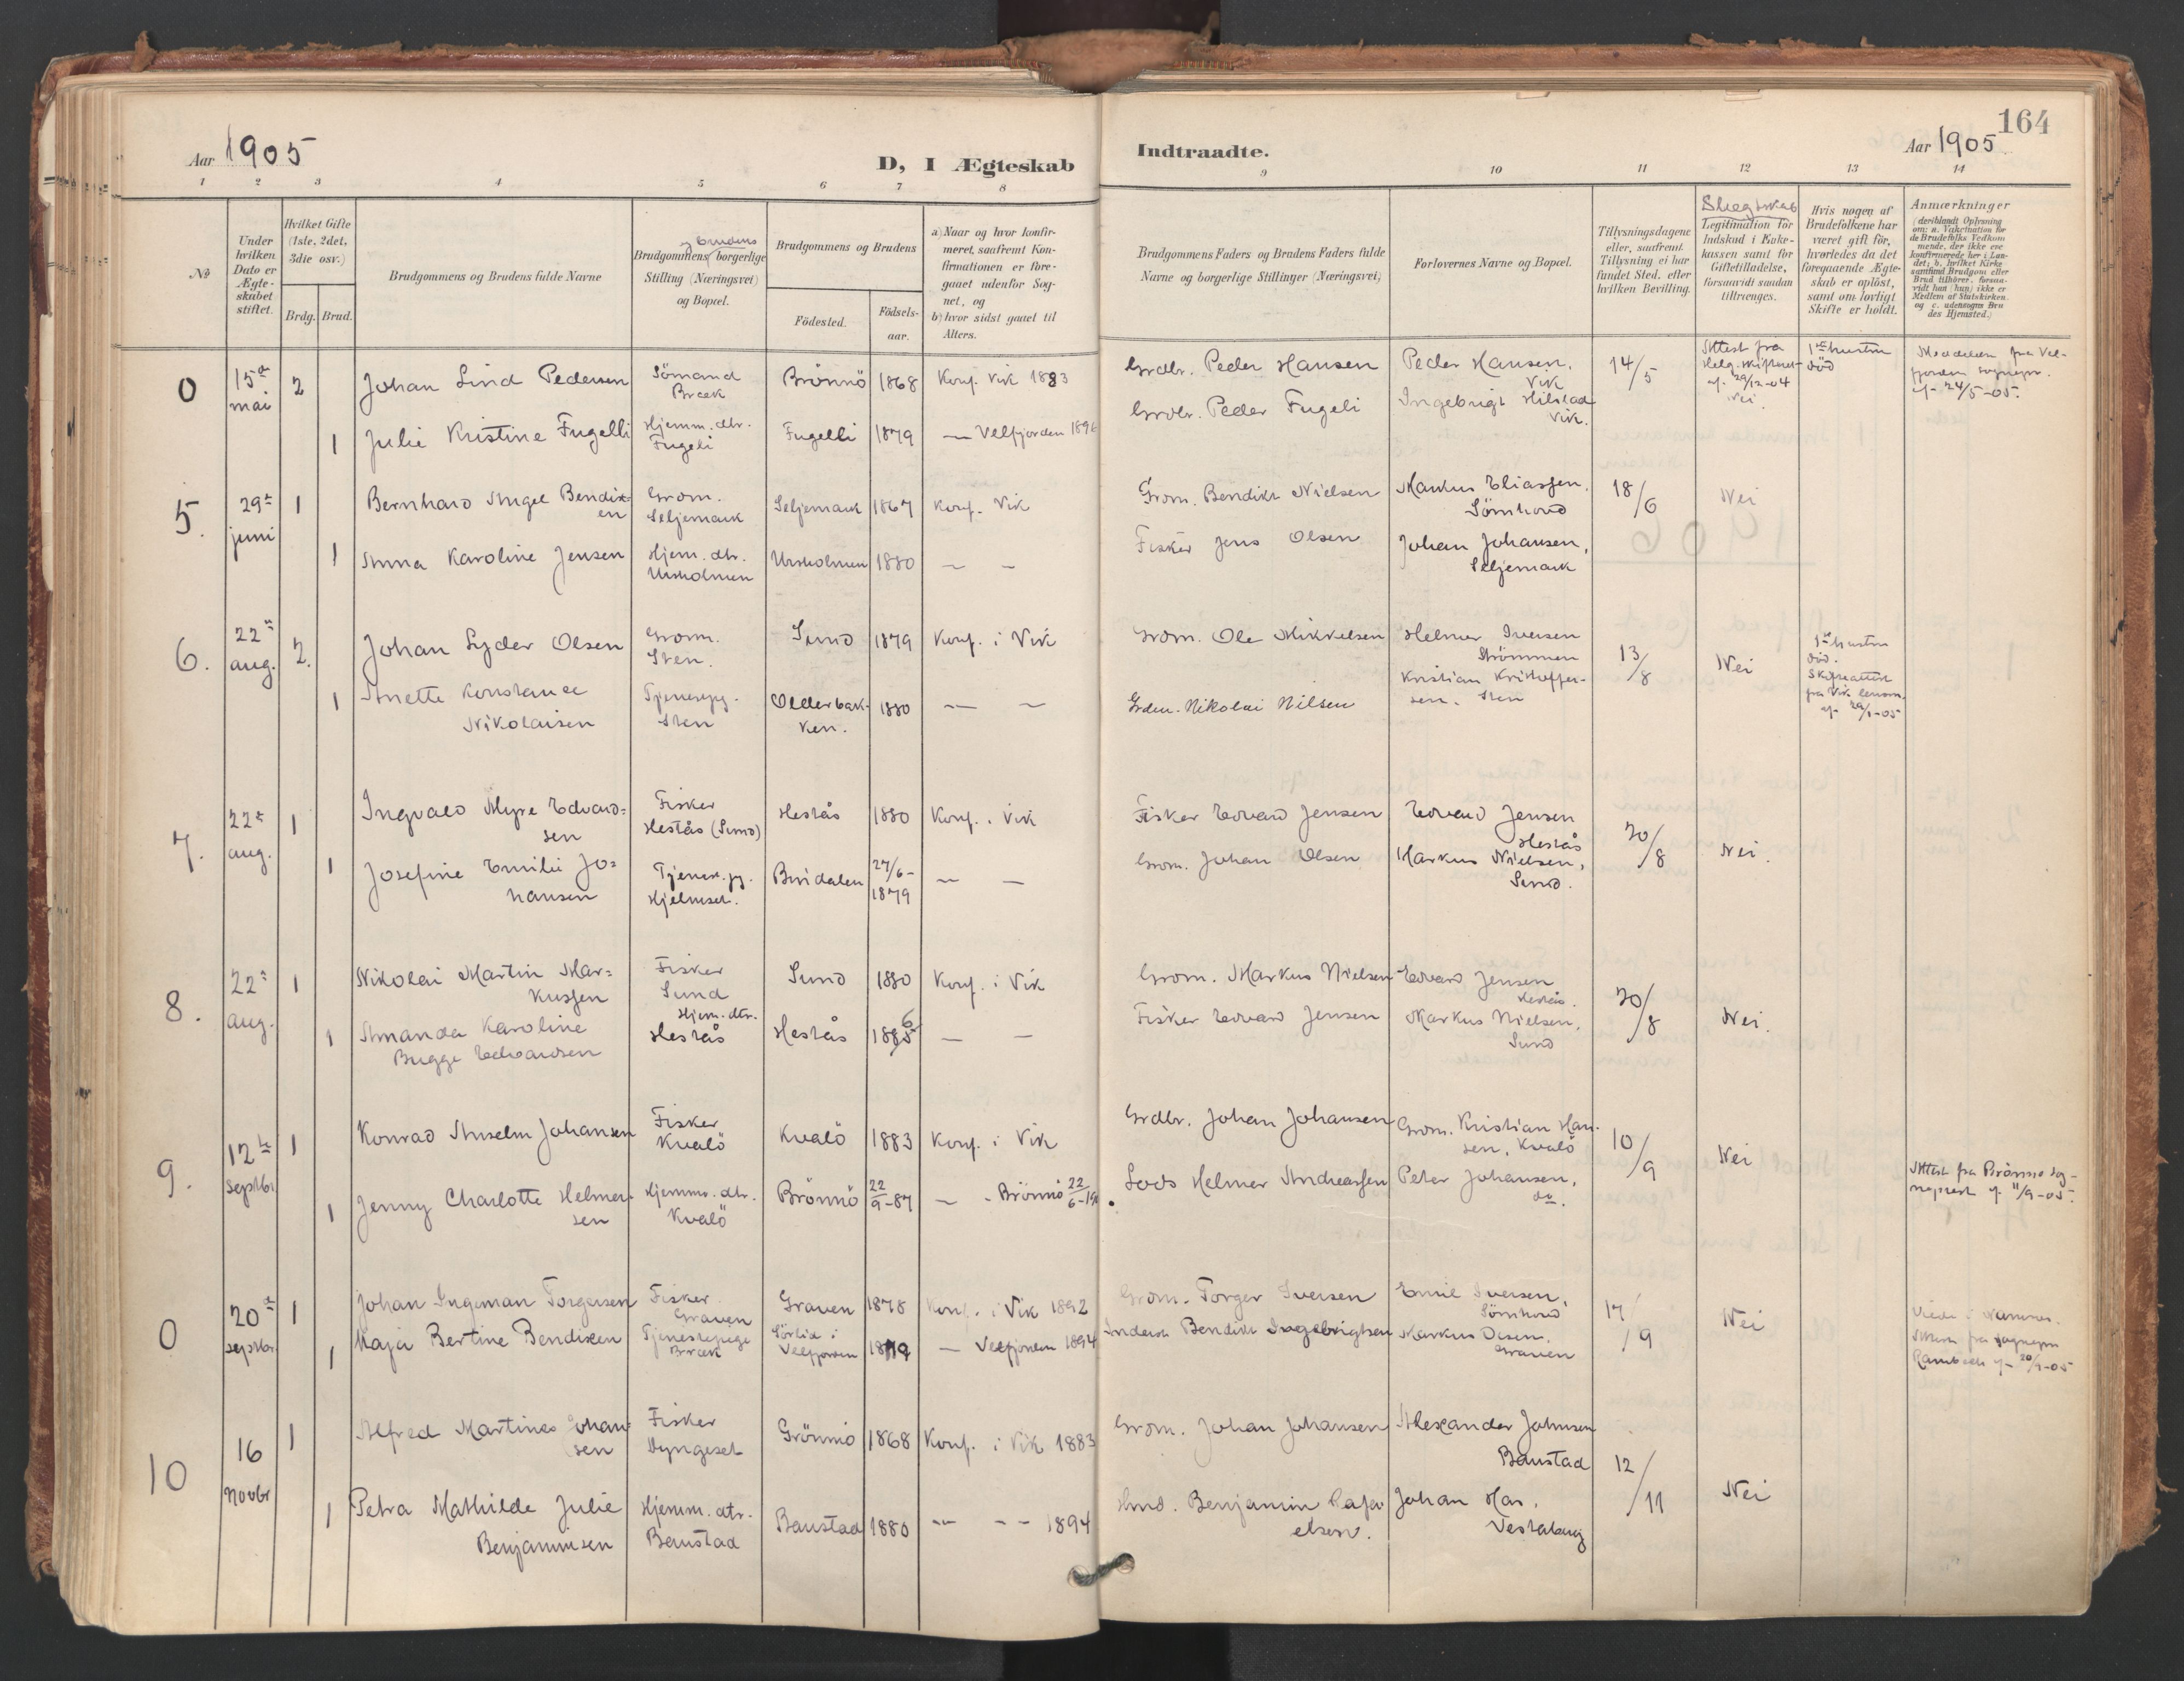 164
Aar 1905
D, I Ægteskab
Indtraadte.
Aar 1905.
1 2 3 4 5 6 7 8 9 10 11 12 13 14
No
Under
hvilken
Dato er
Ægte-
skabet
stiftet.
Hvilket Gifte
(1ste, 2det,
3die osv.)
Brdg. Brud.
Brudgommens og Brudens fulde Navne
og Brudens
Brudgommens borgerlige
Stilling (Næringsvei)
og Bopæl.
Brudgommens og Brudens
Födested.
Födsels-
aar.
a) Naar og hvor konfir-
meret, saafremt Kon-
firmationen er fore-
gaaet udenfor Sog-
net, og
b) hvor sidst gaaet til
Alters.
Brudgommens Faders og Brudens Faders fulde
Navne og borgerlige Stillinger (Næringsvei)
Forlovernes Navne og Bopæl.
Tillysningsdagene
eller, saafremt
Tillysning ei har
fundet Sted, efter
hvilken Bevilling.
Slegtskab
Legitimation for
Indskud i Enke-
kassen samt for
Giftetilladelse,
forsaavidt saadan
tiltrænges.
Hvis nogen af
Brudefolkene har
været gift för,
hvorledes da det
foregaaende Ægte-
skab er oplöst,
samt om lovligt
Skifte er holdt.
Anmærkninger
(deriblandt Oplysning
om: a. Vakcination for
de Brudefolks Vedkom
mende, der ikke ere
konfirmerede her i Lan-
det; b. hvilket Kirke
samfund Brudgom eller
Brud tilhörer, forsaa-
vidt han (hun) ikke er
Medlem af Statskirken.
og c. udensogns Bru
des Hjemsted.)
0 15de mai 2 Johan Lind Pedersen Sömand Bræk Brönnö 1868 Konf. Vik 1883 Grdbr. Peder Hansen Peder Hansen, Vik 14/5 Attest fra Helg. skifteret af 29/12-04 Nei 1ste hustru död Meddelelse fra Vel-
fjorden sognepr. af 24/5-05.
1 Julie Kristine Fugelli Hjemm. dtr. Fugeli Fugelli 1879 — Velfjorden 1896 Grdbr. Peder Fugeli Ingebrigt Hilstad Vik.
5. 29de juni 1 Bernhard Angel Bendik-
sen Grdm. Seljemark Seljemark 1867 Konf. Vik Grdm. Bendikt Nielsen Markus Eliassen, Sömhovd 18/6 Nei
1 Anna Karoline Jensen Hjem. dtr. Ursholmen Ursholmen 1880 — — Fisker Jens Olsen Johan Johansen, Seljemark
6. 22de aug. 2. Johan Lyder Olsen Grdm. Sten. Sund 1879 Konf. i Vik Grdm. Ole Mikkelsen Helmer Iversen Strömmen 13/8 Nei 1ste hustru
död.
Skifteattest
fra Vik lensm.
af 29/1-05
1 Anette Konstance
Nikolaisen Tjenestepg. Sten Olderbak-
ken. 1880 — — Nikolai Nilsen Kristian Kristoffer-
sen. Sten
7. 22de aug. 1 Ingvald Myre Edvard-
sen Fisker Hestås (Sund) Hestås 1880 Konf. i Vik Fisker Edvard Jensen Edvard Jensen Hestås 20/8 Nei.
1 Josefine Emilie Jo-
hansen Tjenest.pg. Hjelmset. Bindalen 27/6-1879 — — Grdm. Johan Olsen Markus Nielsen, Sund.
8. 22de aug. 1 Nikolai Martin Mar-
kussen Fisker Sund Sund 1880 Konf. i Vik Grdm. Markus Nielsen Edvard Jensen Hestås. 20/8 Nei.
1 Amanda Karoline
Bugge Edvardsen Hjem. dtr. Hestås Hestås 1886 — — Fisker Edvard Jensen Markus Nielsen, Sund
9. 12te septbr 1 Konrad Anselm Johansen Fisker Kvalö Kvalö 1883 Konf. i Vik Grdbr. Johan Johansen Grdm. Kristian Han-
sen, Kvalö 10/9 Nei Attest fra Brönnö sog-
neprest af 11/9-05.
1 Jenny Charlotte Helmer-
sen Hjemm. dtr. Kvalö Brönnö 22/9-87 — - Brönnö 22/6-19 Lods Helmer Andreassen Peter Johansen, do.
0 20de septbr. 1 Johan Ingeman Torgersen Fisker Graven Graven 1878 Konf. i Vik 1892 Grdm. Torger Iversen Emil Iversen, Sömhovd 17/9 Nei Viede i Namsos.
Attest fra sognepr
Rambech af 20/9-05
1 Kaja Bertine Bendiksen Tjenestepige Bræk Sörlid i Velfjorden 1879 — Velfjorden 1894 Inderst Bendikt Ingebrigtsen Markus Olsen, Graven
10 16 novbr 1 Alfred Martines Johan-
sen Fisker Dyngeset Grönmo 1868 Konf. i Vik 1883 Grdm. Johan Johansen Alexander Johnsen Baustad 12/11 Nei
1 Petra Mathilde Julie
Benjaminsen Hjemm. dtr. Baustad Baustad 1880 — — 1894 Hmd. Benjamin Rafa-
elsen. Johan Has, Vestahaug